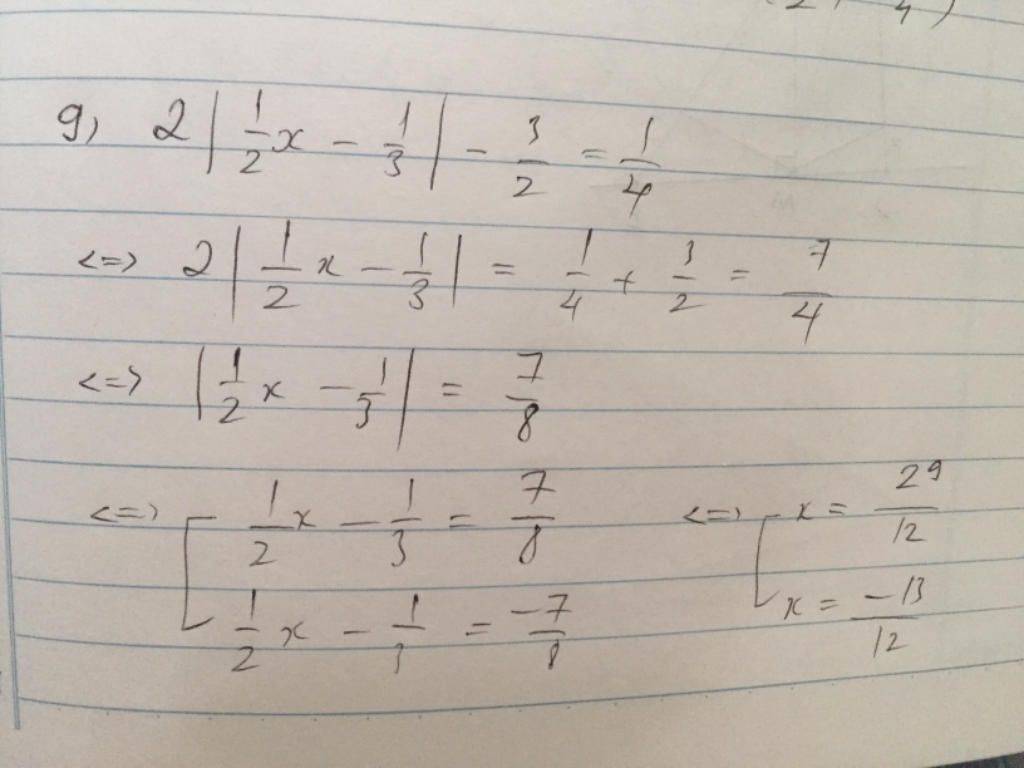 g, 2 | 1/2 x - 1/3 | - 3/2 = 1/4
<=> 2 | 1/2 x - 1/3 | = 1/4 + 3/2 = 7/4
<=> | 1/2 x - 1/3 | = 7/8
<=> [ 1/2 x - 1/3 = 7/8 <=> [ x = 29/12
1/2 x - 1/3 = -7/8 x = -13/12